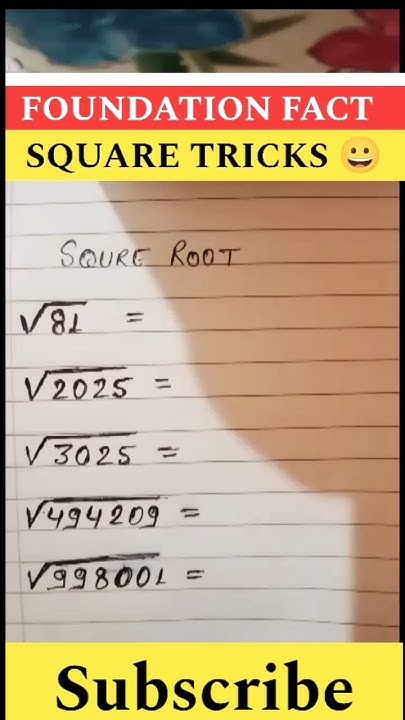 FOUNDATION FACT
SQUARE TRICKS 😀
SQURE ROOT
√81 =
√2025 =
√3025 =
√494209 =
√998001 =
Subscribe